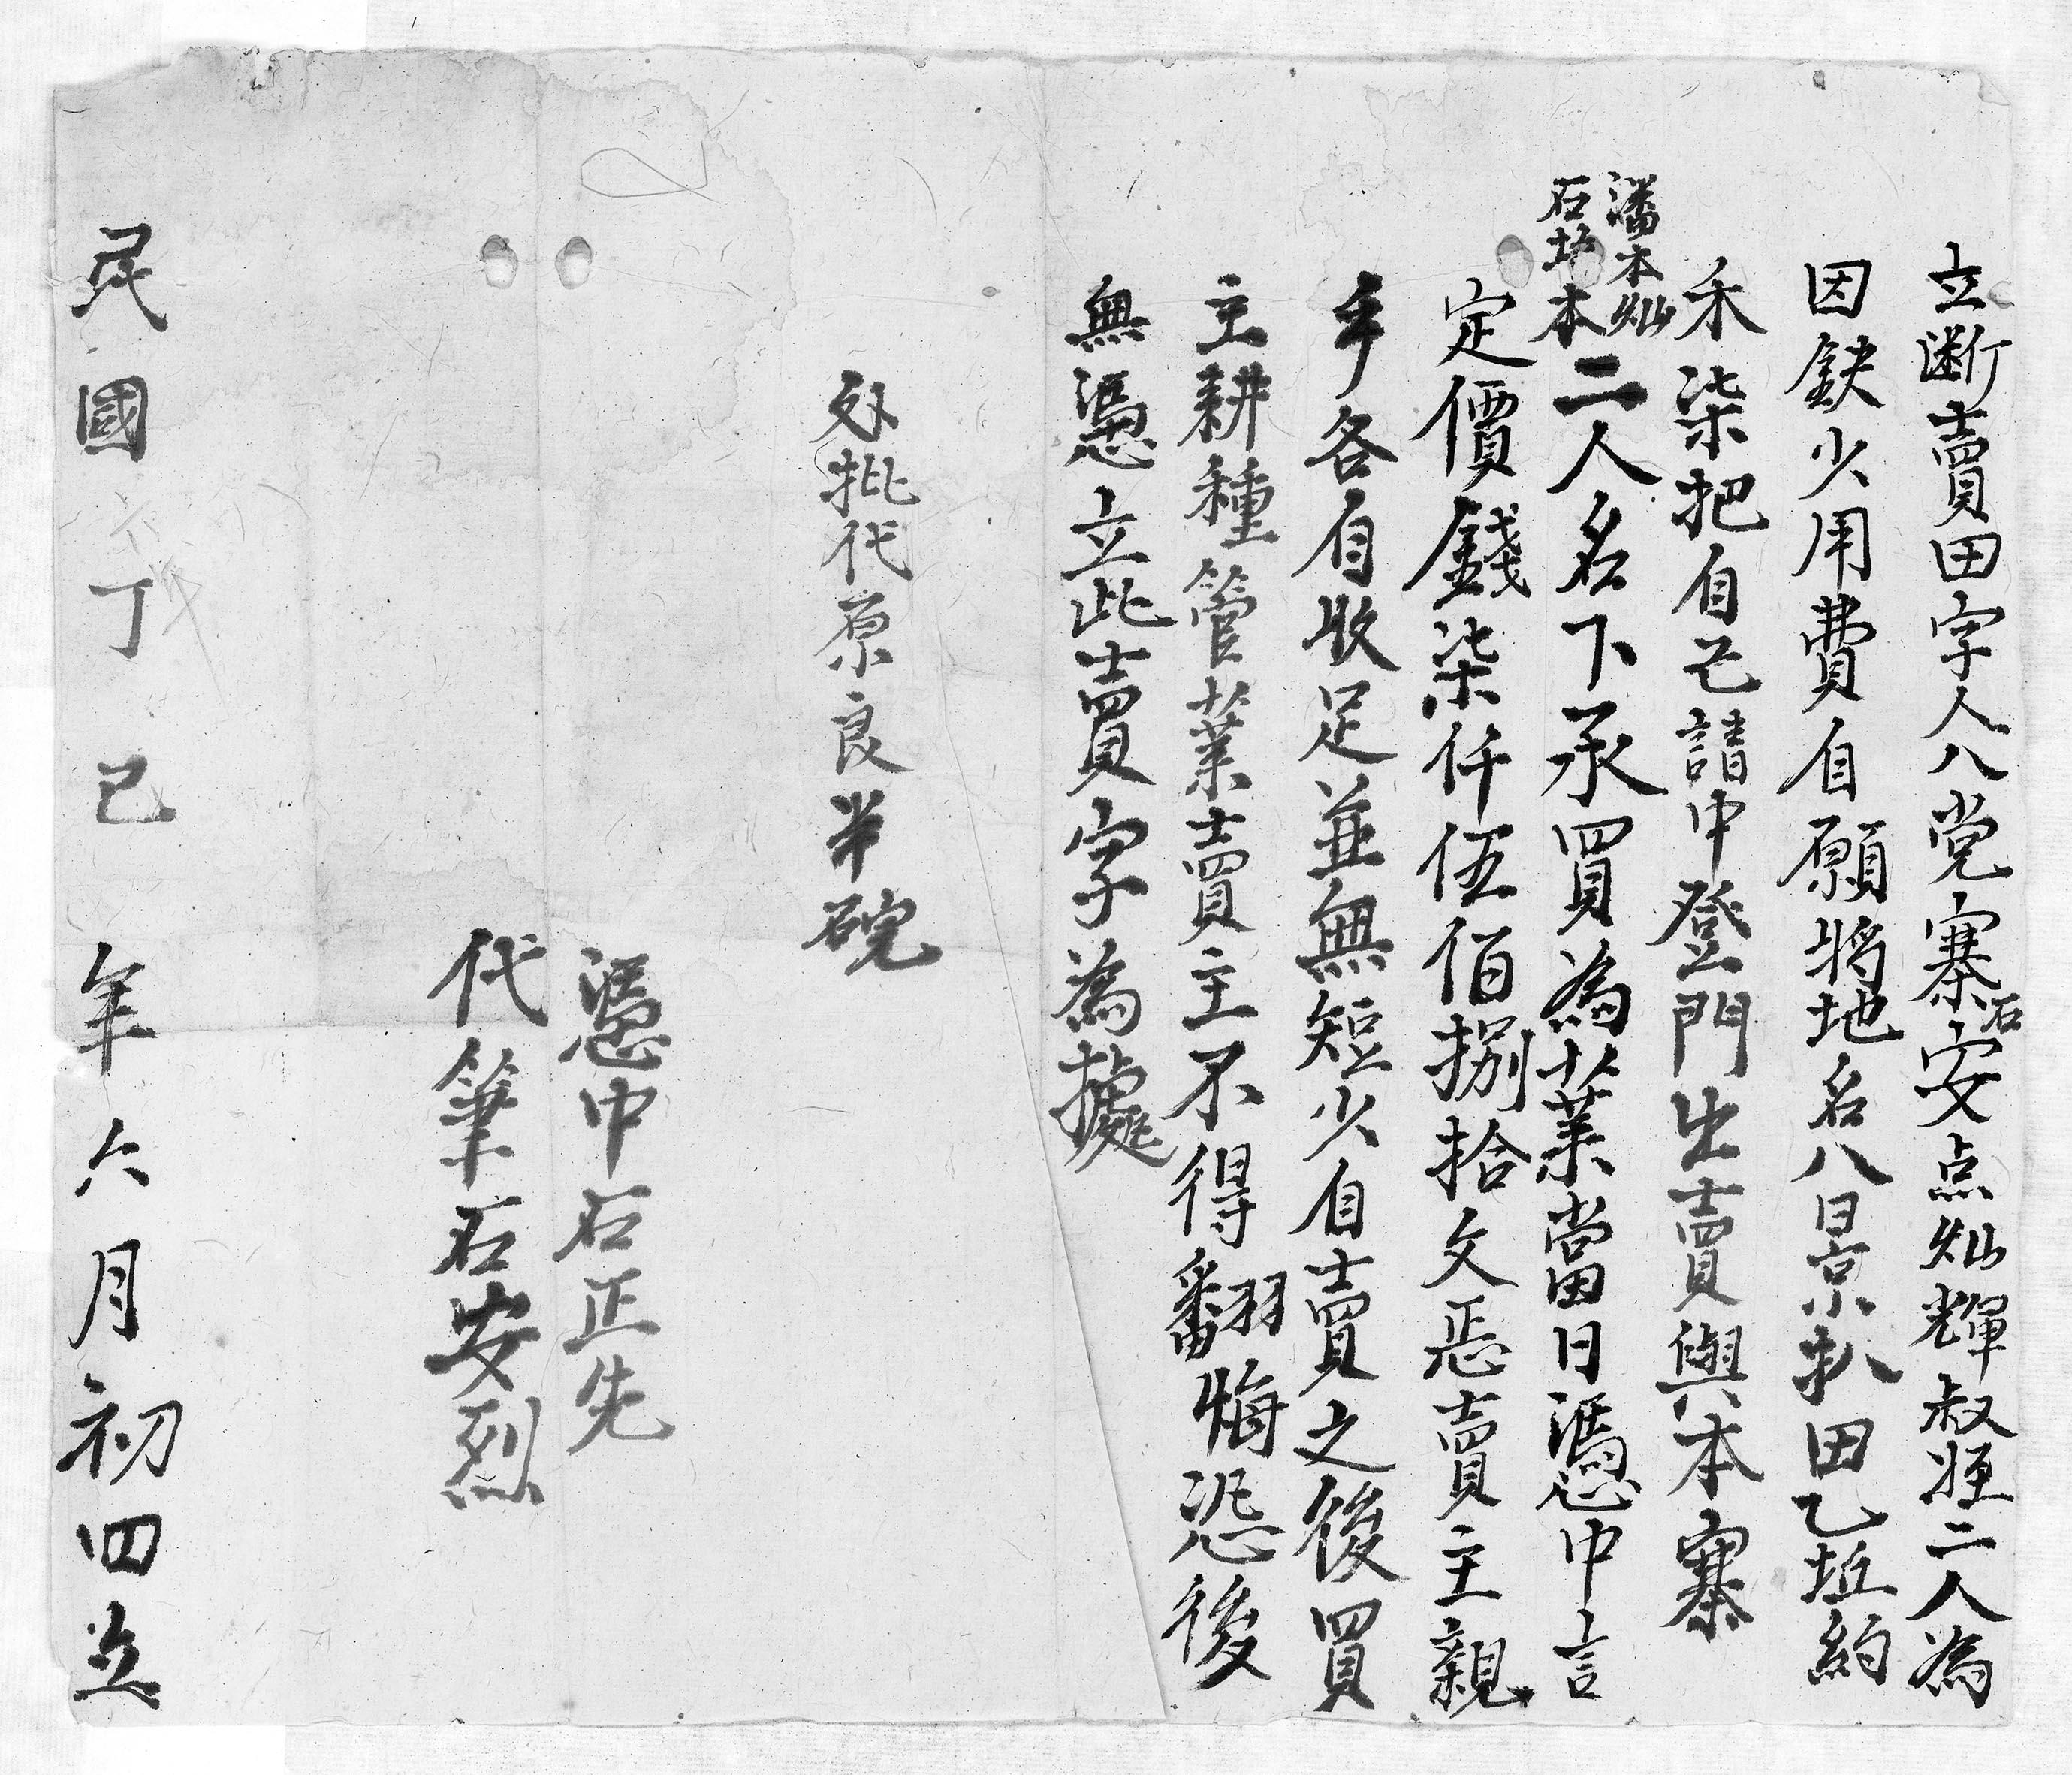 立断賣田字人八党寨石安点灿輝叔姪二人為
因缺少用費自願將地名八景扒田乙坵約
禾柒把自己請中登門出賣與本寨
潘本灿
石培本
二人名下承買為業當日憑中言
定價錢柒仟伍佰捌拾文恁賣主親
手各自收足並無短少自賣之後買
主耕種管業賣主不得翻悔恐後
無憑立此賣字為據
批代原良半碗
憑中石正先
代筆石安烈
民國丁巳年六月初四立